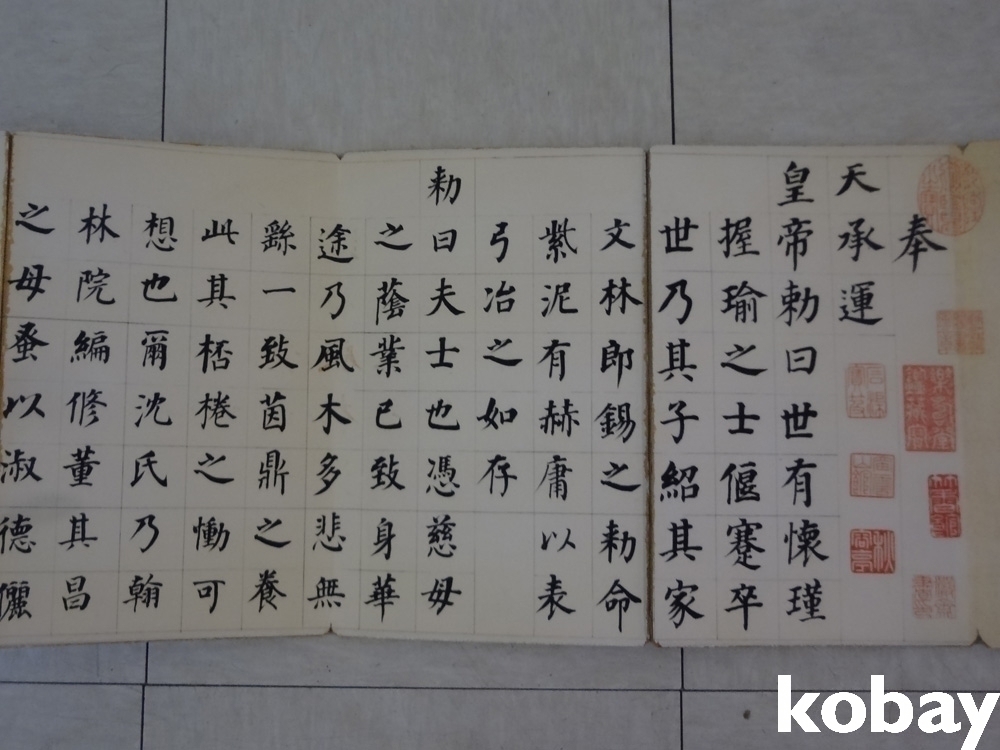 奉
天承運
皇帝勅曰世有懷瑾
握瑜之士偃蹇卒
世乃其子紹其家
文林郎錫之勑命
紫泥有赫庸以表
弓冶之如存
勑曰夫士也憑慈母
之蔭業已致身華
途乃風木多悲無
繇一致茵鼎之養
此其桮棬之慟可
想也爾沈氏乃翰
林院編修董其昌
之母蚤以淑德儷
kobay